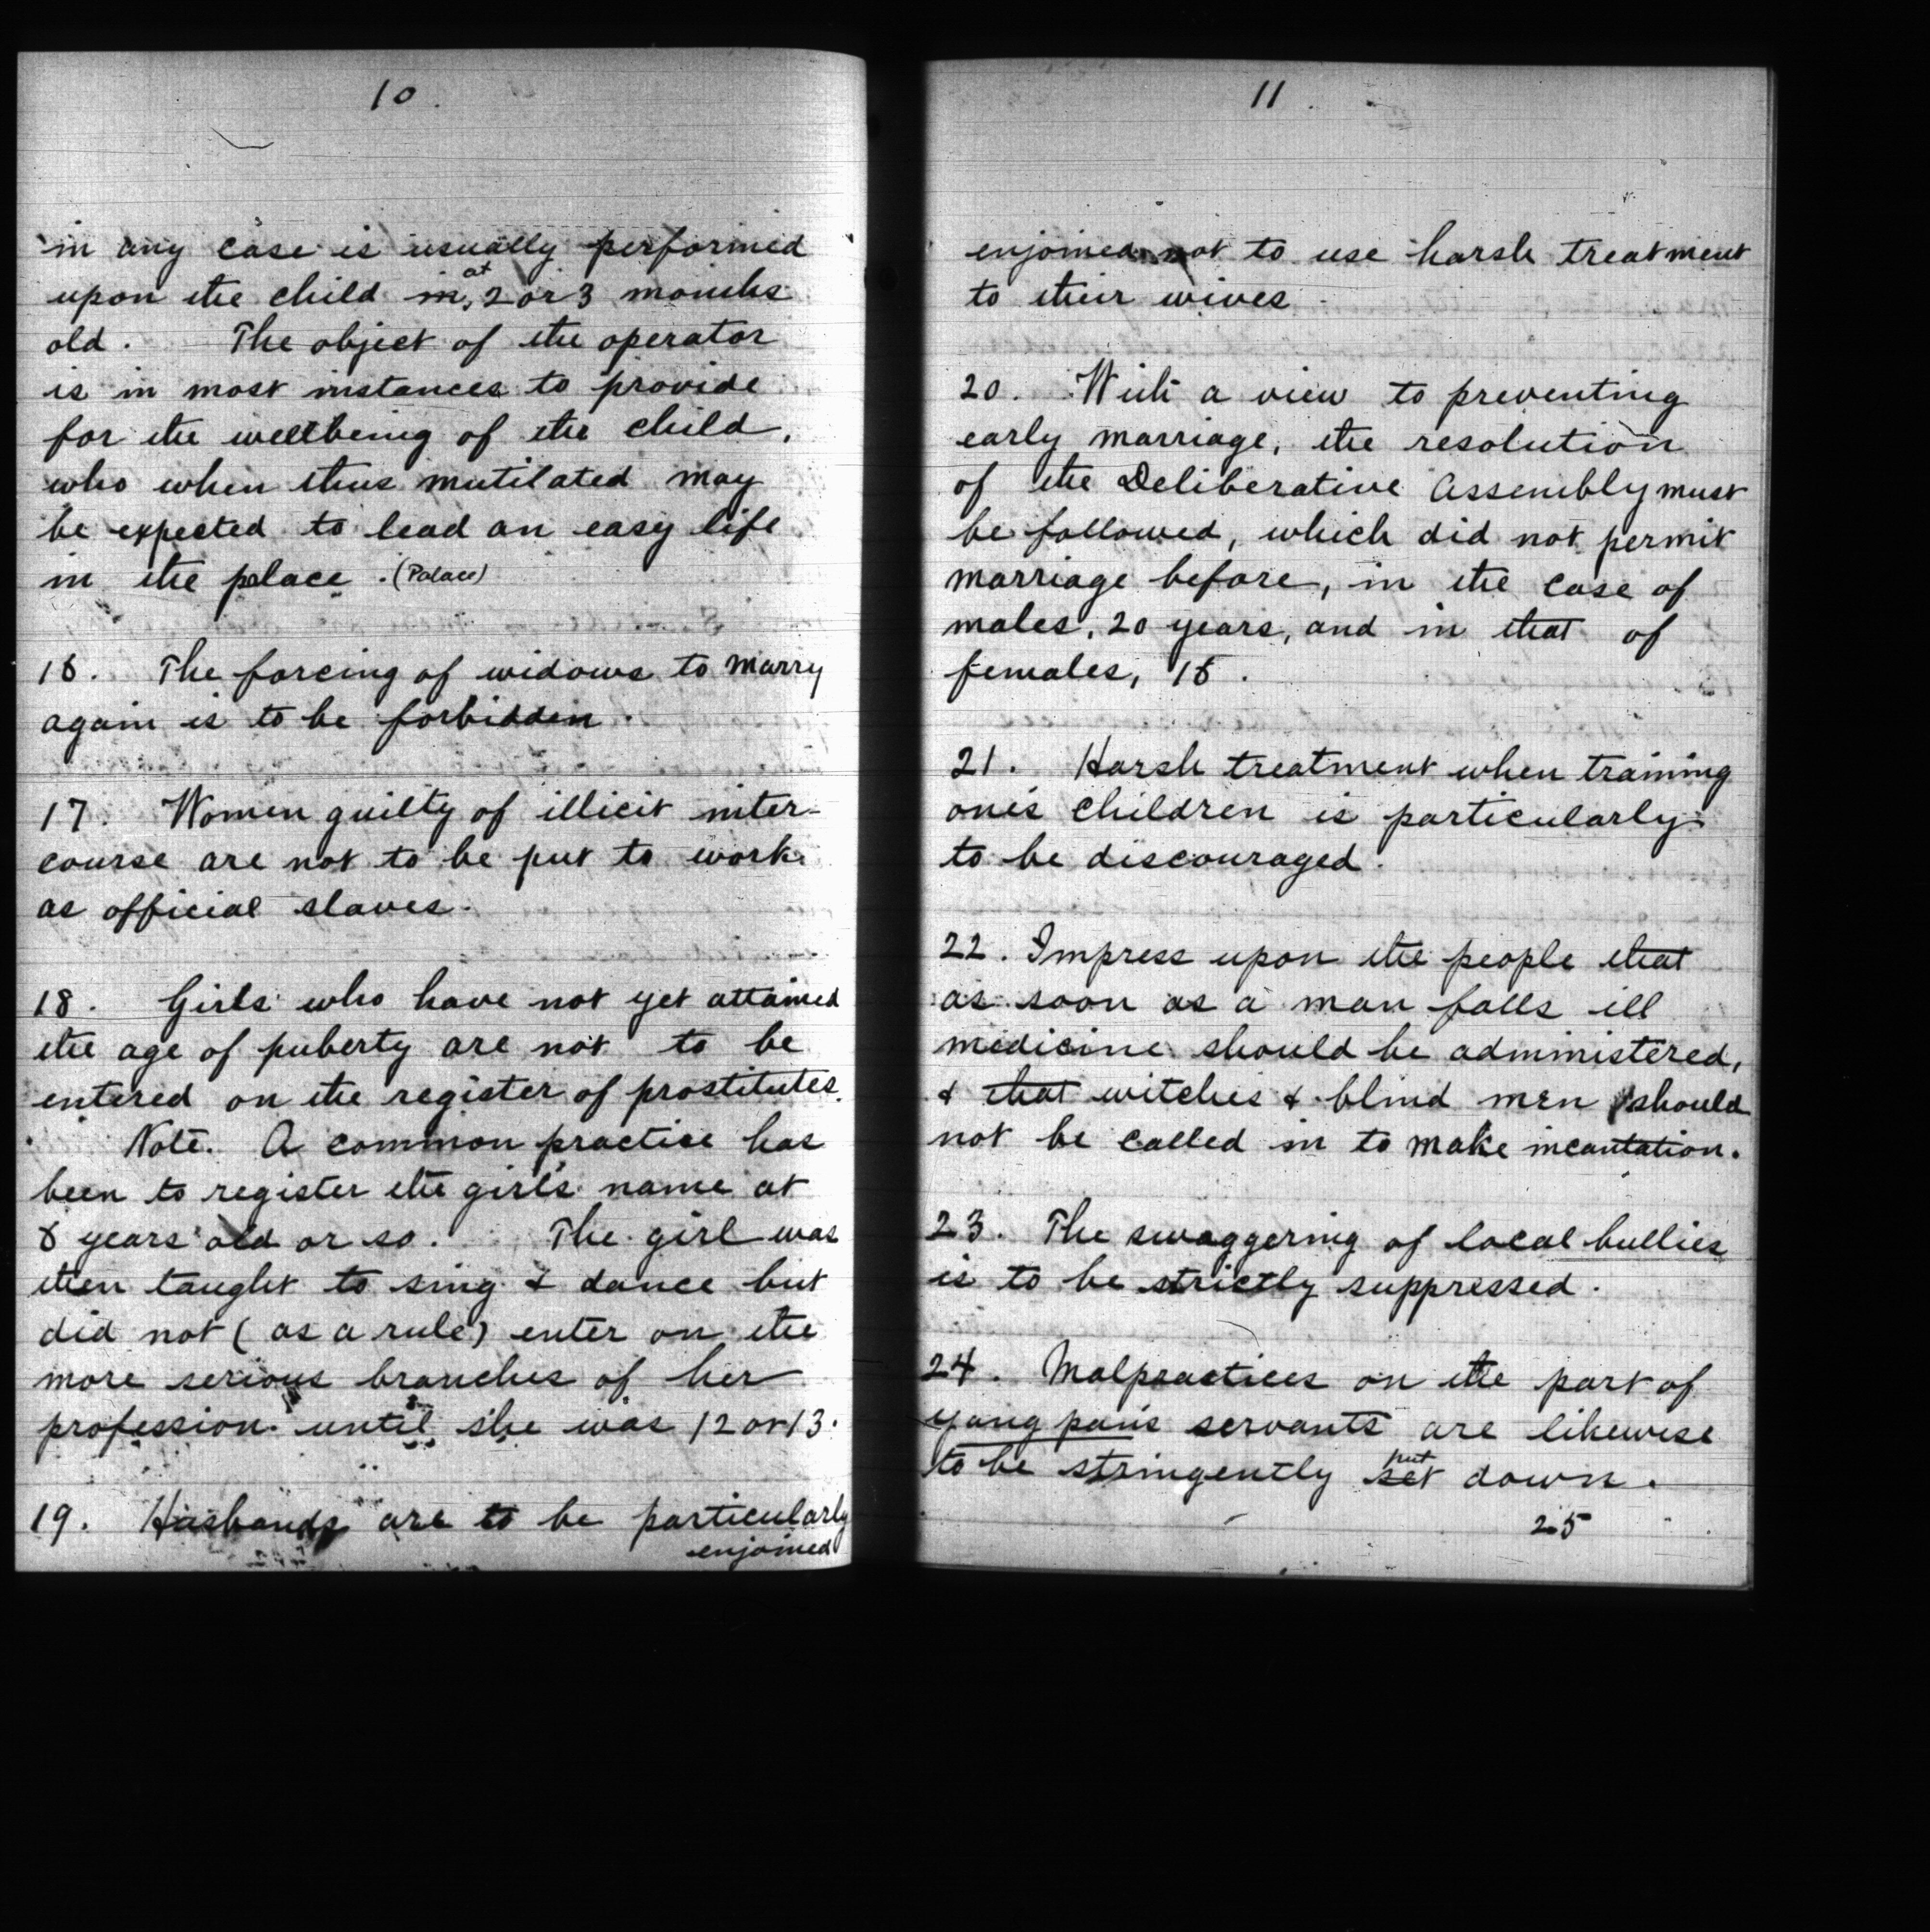 10.
in any case is usually performed
upon the child in at 2 or 3 months
old. The object of the operator
is in most instances to provide
for the wellbeing of the child,
who when thus mutilated may
be expected to lead an easy life
in the place. (Palace)
16. The forcing of widows to marry
again is to be forbidden.
17. Women guilty of illicit inter-
course are not to be put to work
as official slaves.
18. Girls who have not yet attained
the age of puberty are not to be
entered on the register of prostitutes.
Note. A common practice has
been to register the girl's name at
8 years old or so. The girl was
then taught to sing & dance but
did not (as a rule) enter on the
more serious branches of her
profession until she was 12 or 13.
19. Husbands are to be particularly
enjoined
11.
enjoined not to use harsh treatment
to their wives.
20. With a view to preventing
early marriage, the resolution
of the Deliberative Assembly must
be followed, which did not permit
marriage before, in the case of
males, 20 years, and in that of
females, 15.
21. Harsh treatment when training
one's children is particularly
to be discouraged.
22. Impress upon the people that
as soon as a man falls ill
medicine should be administered,
& that witches & blind men should
not be called in to make incantation.
23. The swaggering of local bullies
is to be strictly suppressed.
24. Malpractices on the part of
yang pan's servants are likewise
to be stringently set put down.
25